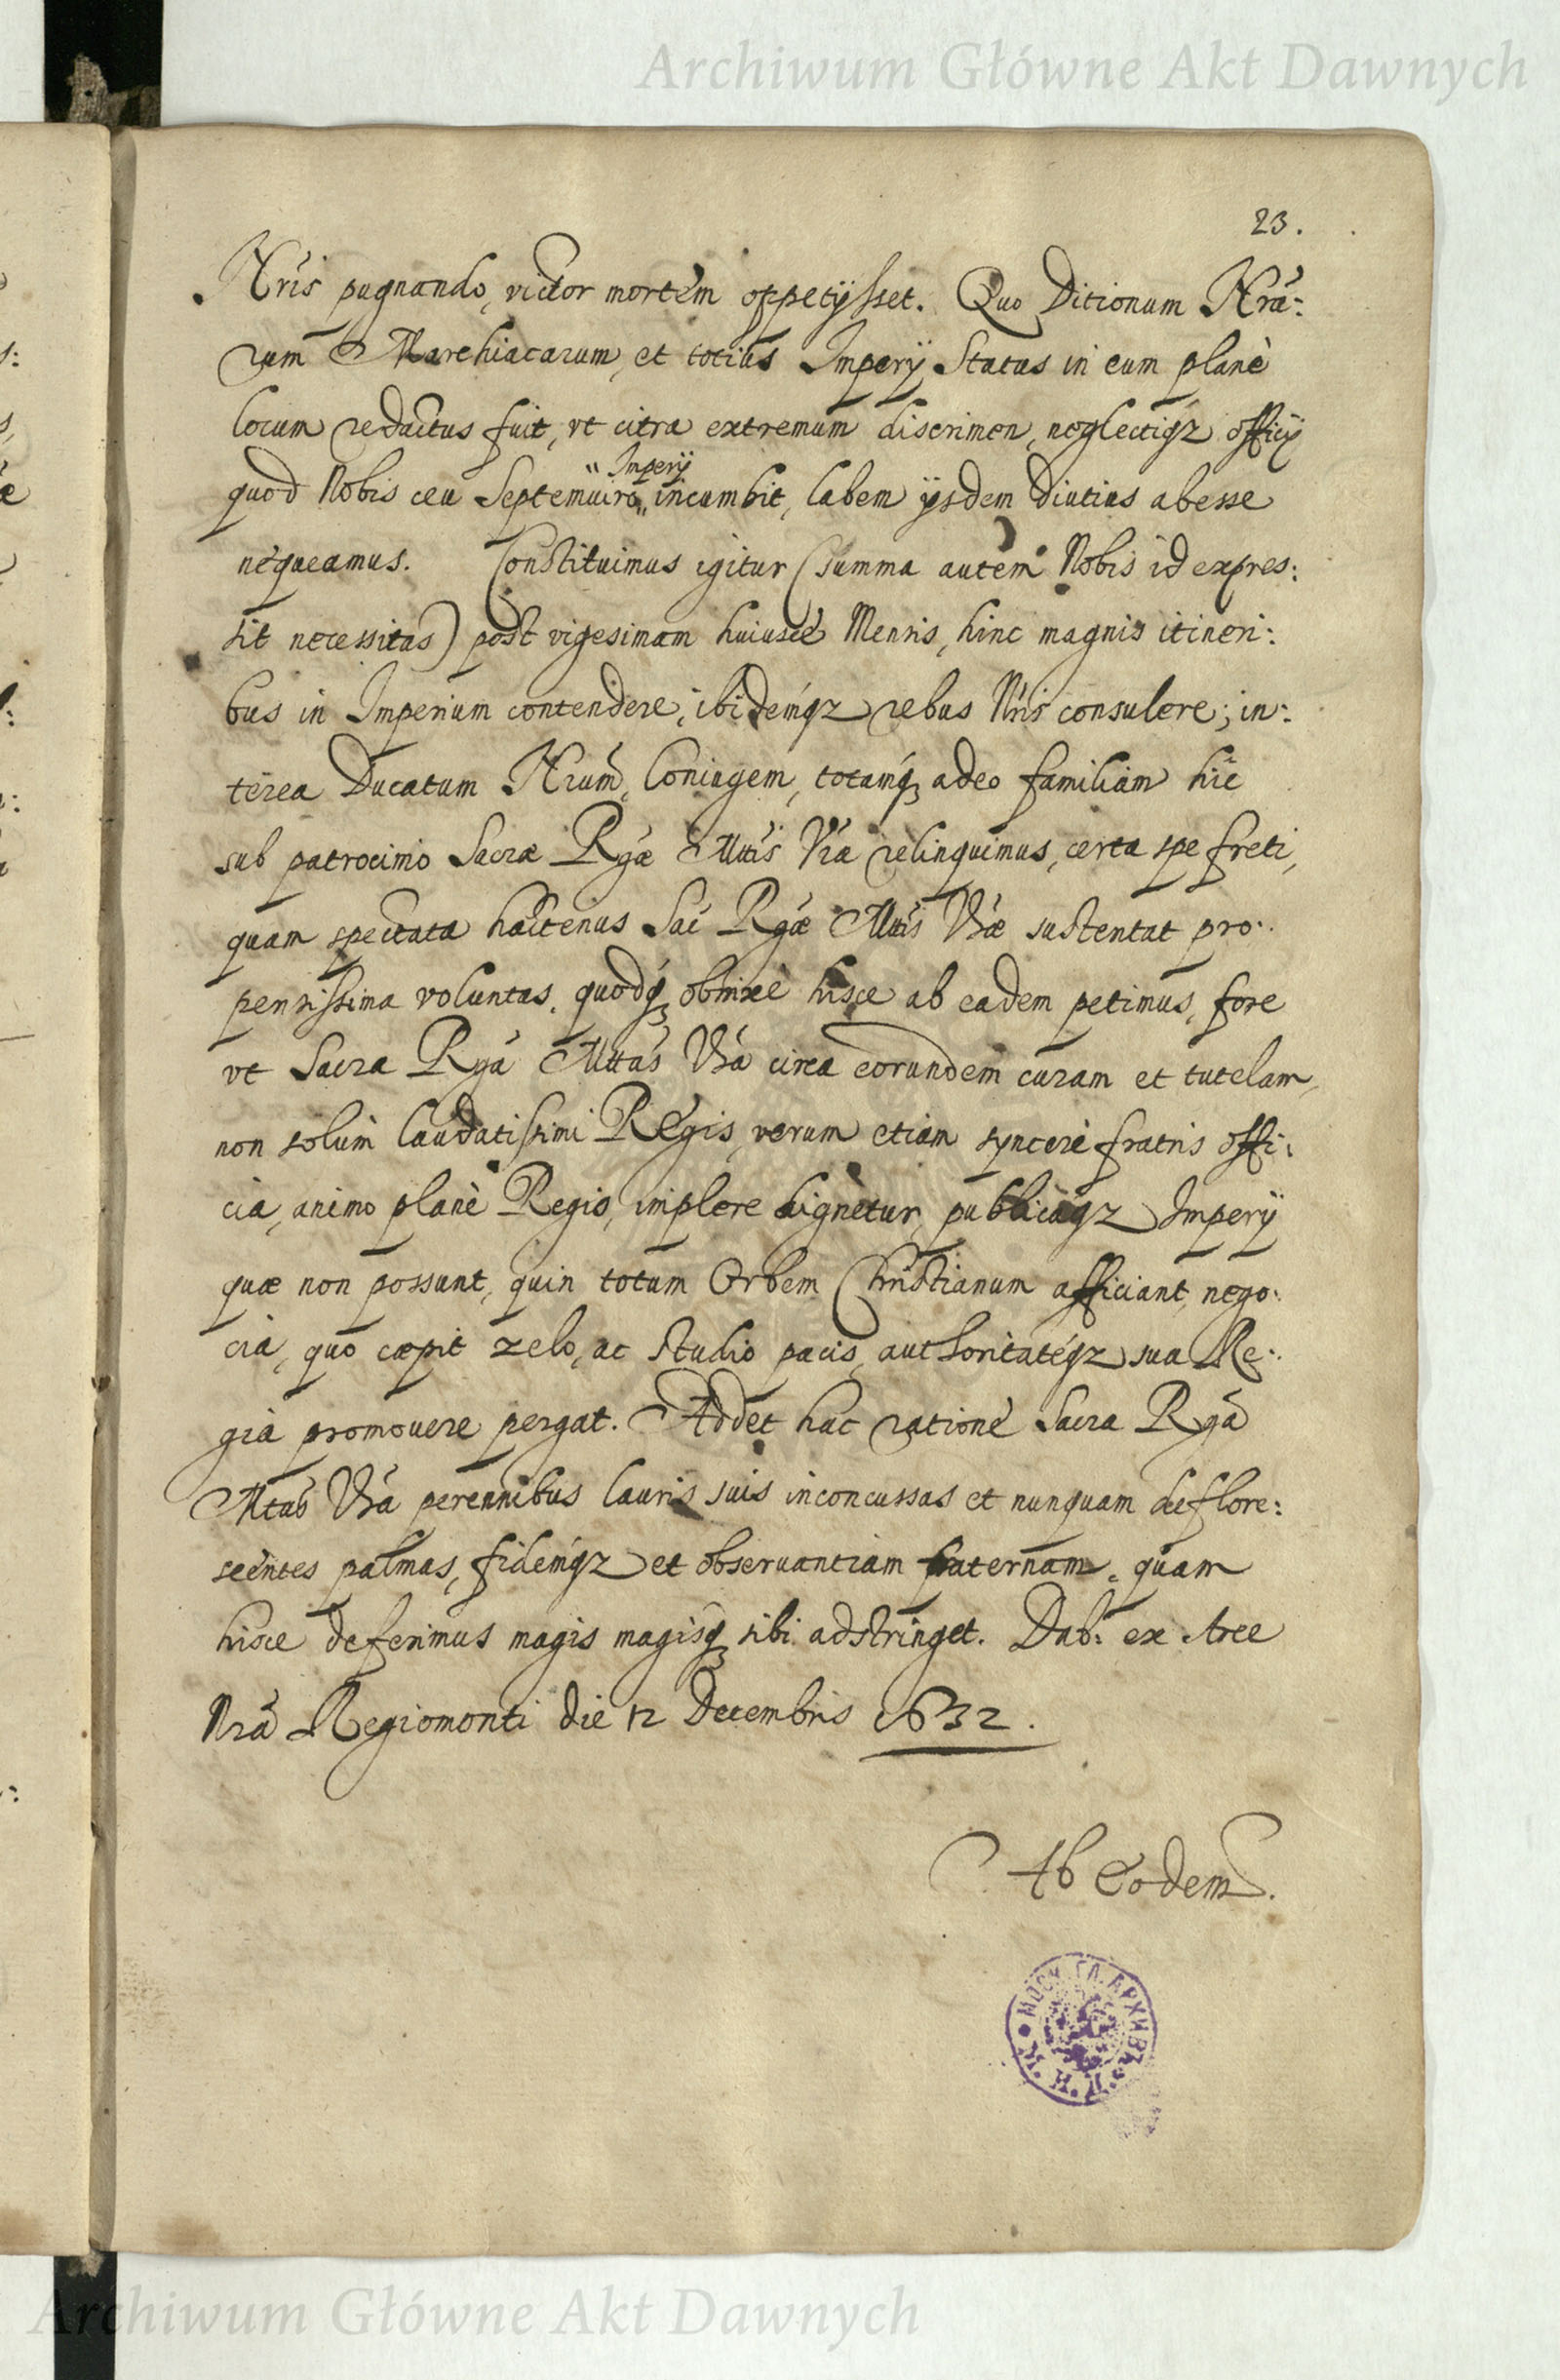 Archiwum Główne Akt Dawnych
23.
Nris pugnando, victor mortem oppetijsset. Quo Ditionum Nra:
rum Marchiacarum, et totius Imperij Status in eum planè
locum redactus fuit, vt citra extremum discrimen, neglectiqz officij
quod Nobis ceu Septemuiro Imperij incumbit, labem ijsdem diutius abesse
nequeamus. Constituimus igitur (summa autem Nobis id expres:
sit necessitas) post vigesimam huiusce Mensis, hinc magnis itineri:
bus in Imperium contendere, ibidemqz rebus Nris consulere; in:
terea Ducatum Nrum, Coniugem, totamq adeo familiam hic
sub patrocinio Sacræ Rgæ Mttis Vræ relinquimus, certa spe freti,
quam spectata hactenus Sac Rgæ Mttis Vræ sustentat pro:
pensissima voluntas, quodq obnixè hisce ab eadem petimus, fore
vt Sacra Rga Mttas Vra circa eorundem curam et tutelam,
non solum laudatissimi Regis, verum etiam synceri fratris offi:
cia, animo planè Regio, implere dignetur, publicaqz Imperij
quæ non possunt, quin totum Orbem Christianum afficiant, nego:
cia, quo cæpit zelo, ac studio pacis, authoritateqz sua Re:
gia promouere pergat. Addet hac ratione Sacra Rga
Mttas Vra perennibus lauris suis inconcussas et nunquam deflore:
scentes palmas, fidemqz et obseruantiam fraternam, quam
hisce deferimus magis magisq sibi adstringet. Dab: ex Arce
Nra Regiomonti die 12 Decembris 1632.
Ab Eodem.
МОСК. ГЛ. АРХИВЪ М. И. Д.
Archiwum Główne Akt Dawnych